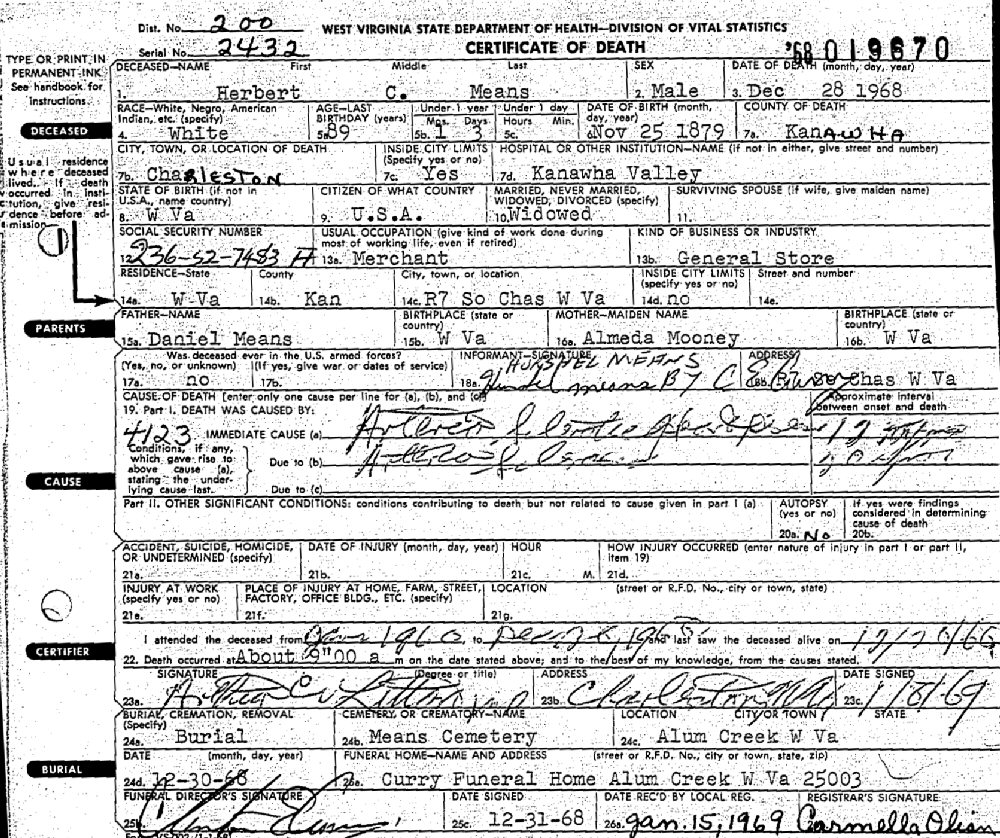 Dist. No. 200 WEST VIRGINIA STATE DEPARTMENT OF HEALTH—DIVISION OF VITAL STATISTICS
Serial No. 2432 CERTIFICATE OF DEATH '68 019670
TYPE OR PRINT IN PERMANENT INK See handbook for instructions.
DECEASED—NAME First Middle Last SEX DATE OF DEATH (month, day, year)
1. Herbert C. Means 2. Male 3. Dec 28 1968
RACE—White, Negro, American Indian, etc. (specify) AGE—LAST BIRTHDAY (years) Under 1 year Under 1 day DATE OF BIRTH (month, day, year) COUNTY OF DEATH
Mos. Days Hours Min.
DECEASED
4. White 5a. 89 5b. 1 3 5c. 6. Nov 25 1879 7a. KanAWHA
CITY, TOWN, OR LOCATION OF DEATH INSIDE CITY LIMITS (Specify yes or no) HOSPITAL OR OTHER INSTITUTION—NAME (if not in either, give street and number)
7b. ChaRLESTON 7c. Yes 7d. Kanawha Valley
Usual residence where deceased lived. If death occurred in institution, give residence before admission
STATE OF BIRTH (if not in U.S.A., name country) CITIZEN OF WHAT COUNTRY MARRIED, NEVER MARRIED, WIDOWED, DIVORCED (specify) SURVIVING SPOUSE (if wife, give maiden name)
8. W Va 9. U.S.A. 10. Widowed 11.
SOCIAL SECURITY NUMBER USUAL OCCUPATION (give kind of work done during most of working life, even if retired) KIND OF BUSINESS OR INDUSTRY
12. 236-52-7483 A 13a. Merchant 13b. General Store
RESIDENCE—State County City, town, or location INSIDE CITY LIMITS (specify yes or no) Street and number
14a. W Va 14b. Kan 14c. R7 So Chas W Va 14d. no 14e.
PARENTS
FATHER—NAME BIRTHPLACE (state or country) MOTHER—MAIDEN NAME BIRTHPLACE (state or country)
15a. Daniel Means 15b. W Va 16a. Almeda Mooney 16b. W Va
Was deceased ever in the U.S. armed forces? INFORMANT—SIGNATURE HURSHEL MEANS ADDRESS
(Yes, no, or unknown) (If yes, give war or dates of service)
17a. no 17b. 18a. means By C 18b. R7 So Chas W Va
CAUSE OF DEATH [enter only one cause per line for (a), (b), and (c)] Approximate interval between onset and death
19. Part I. DEATH WAS CAUSED BY:
4123 IMMEDIATE CAUSE (a)
Conditions, if any, which gave rise to above cause (a), stating the underlying cause last.
Due to (b)
CAUSE
Due to (c)
Part II. OTHER SIGNIFICANT CONDITIONS: conditions contributing to death but not related to cause given in part I (a) AUTOPSY (yes or no) If yes were findings considered in determining cause of death
20a. No 20b.
ACCIDENT, SUICIDE, HOMICIDE, OR UNDETERMINED (specify) DATE OF INJURY (month, day, year) HOUR HOW INJURY OCCURRED (enter nature of injury in part I or part II, item 19)
21a. 21b. 21c. M. 21d.
INJURY AT WORK (specify yes or no) PLACE OF INJURY AT HOME, FARM, STREET, FACTORY, OFFICE BLDG., ETC. (specify) LOCATION (street or R.F.D. No., city or town, state)
21e. 21f. 21g.
CERTIFIER
I attended the deceased from Jan 1960, to Dec 28, 1968 and last saw the deceased alive on
22. Death occurred at About 9"00 a m on the date stated above; and to the best of my knowledge, from the causes stated.
SIGNATURE (Degree or title) ADDRESS DATE SIGNED
23a. 23b. Charleston, W Va 23c. 1/8/69
BURIAL, CREMATION, REMOVAL (Specify) CEMETERY, OR CREMATORY—NAME LOCATION CITY OR TOWN STATE
24a. Burial 24b. Means Cemetery 24c. Alum Creek W Va
BURIAL
DATE (month, day, year) FUNERAL HOME—NAME AND ADDRESS (street or R.F.D. No., city or town, state, zip)
24d. 12-30-68 Curry Funeral Home Alum Creek W Va 25003
FUNERAL DIRECTOR'S SIGNATURE DATE SIGNED DATE REC'D BY LOCAL REG. REGISTRAR'S SIGNATURE
25b. 25c. 12-31-68 26a. Jan. 15, 1969 Carmella